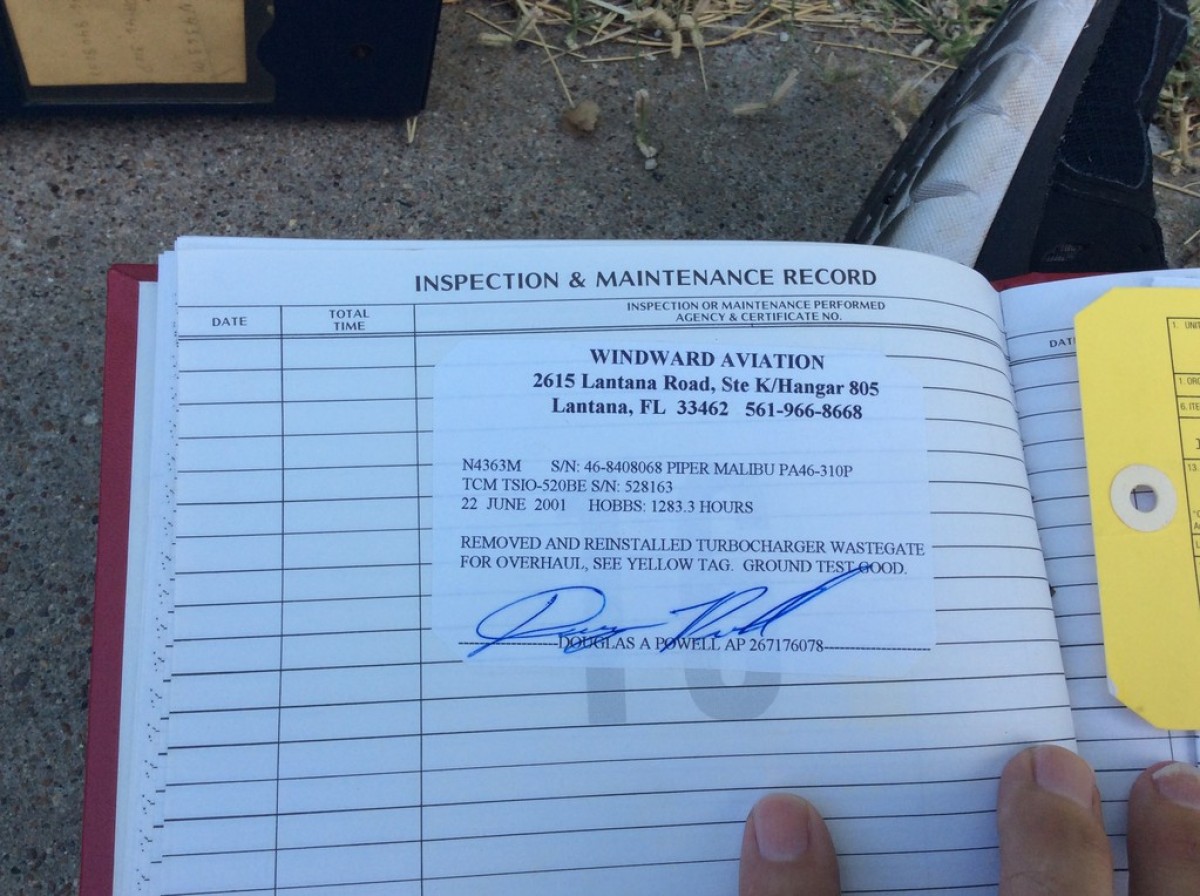 INSPECTION & MAINTENANCE RECORD
DATE
TOTAL TIME
INSPECTION OR MAINTENANCE PERFORMED
AGENCY & CERTIFICATE NO.
WINDWARD AVIATION
2615 Lantana Road, Ste K/Hangar 805
Lantana, FL 33462 561-966-8668
N4363M S/N: 46-8408068 PIPER MALIBU PA46-310P
TCM TSIO-520BE S/N: 528163
22 JUNE 2001 HOBBS: 1283.3 HOURS
REMOVED AND REINSTALLED TURBOCHARGER WASTEGATE
FOR OVERHAUL, SEE YELLOW TAG. GROUND TEST GOOD.
DOUGLAS A POWELL AP 267176078